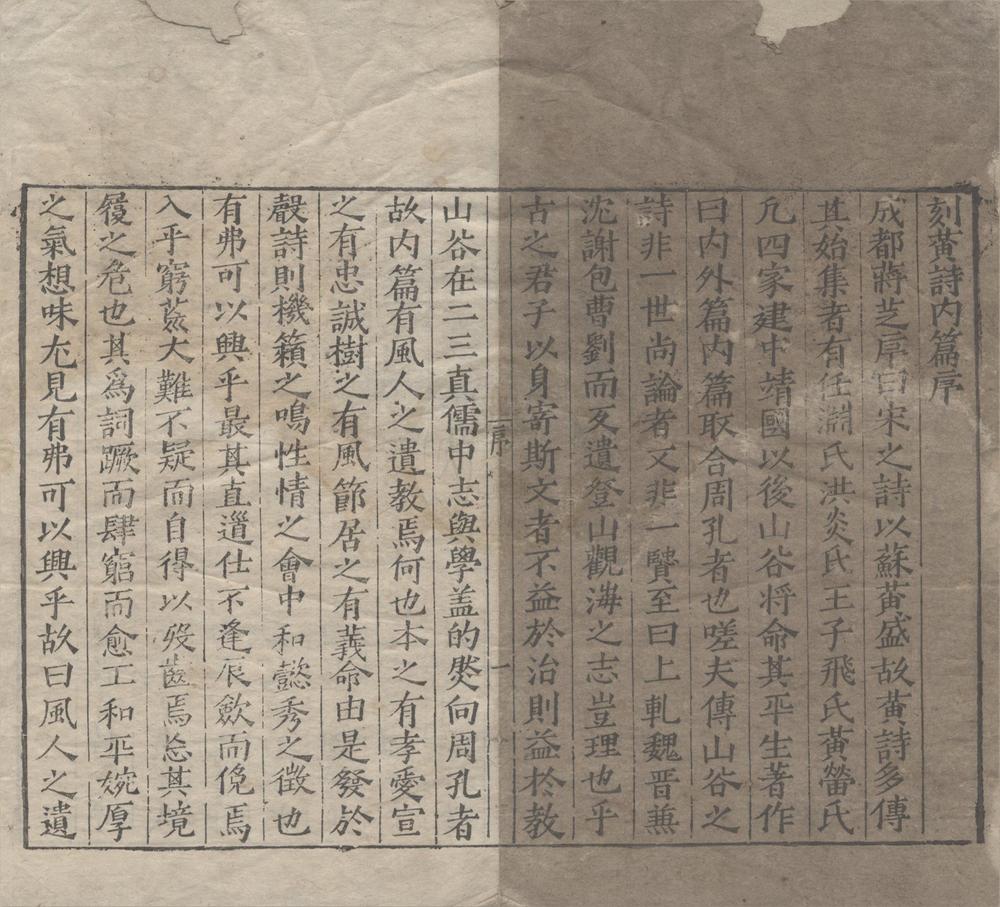 刻黃詩内篇序
成都蔣芝序曰宋之詩以蘇黃盛故黃詩多傳
其始集者有任淵氏洪炎氏王子飛氏黃㽦氏
凢四家建中靖國以後山谷將命其平生著作
曰内外篇内篇取合周孔者也嗟夫傳山谷之
詩非一世尚論者又非一賢至曰上軋魏晋兼
沈謝包曹劉而又遺登山觀海之志豈理也乎
古之君子以身寄斯文者不益於治則益於教
序 一
山谷在二三真儒中志與學盖的然向周孔者
故内篇有風人之遺教焉何也本之有孝愛宣
之有忠誠樹之有風節居之有義命由是發於
聲詩則機籟之鳴性情之會中和懿秀之徵也
有弗可以興乎最其直道仕不逢辰歛而俛焉
入乎窮荄大難不疑而自得以歿齒焉忘其境
履之危也其為詞蹶而肆窮而愈工和平婉厚
之氣想味尤見有弗可以興乎故曰風人之遺